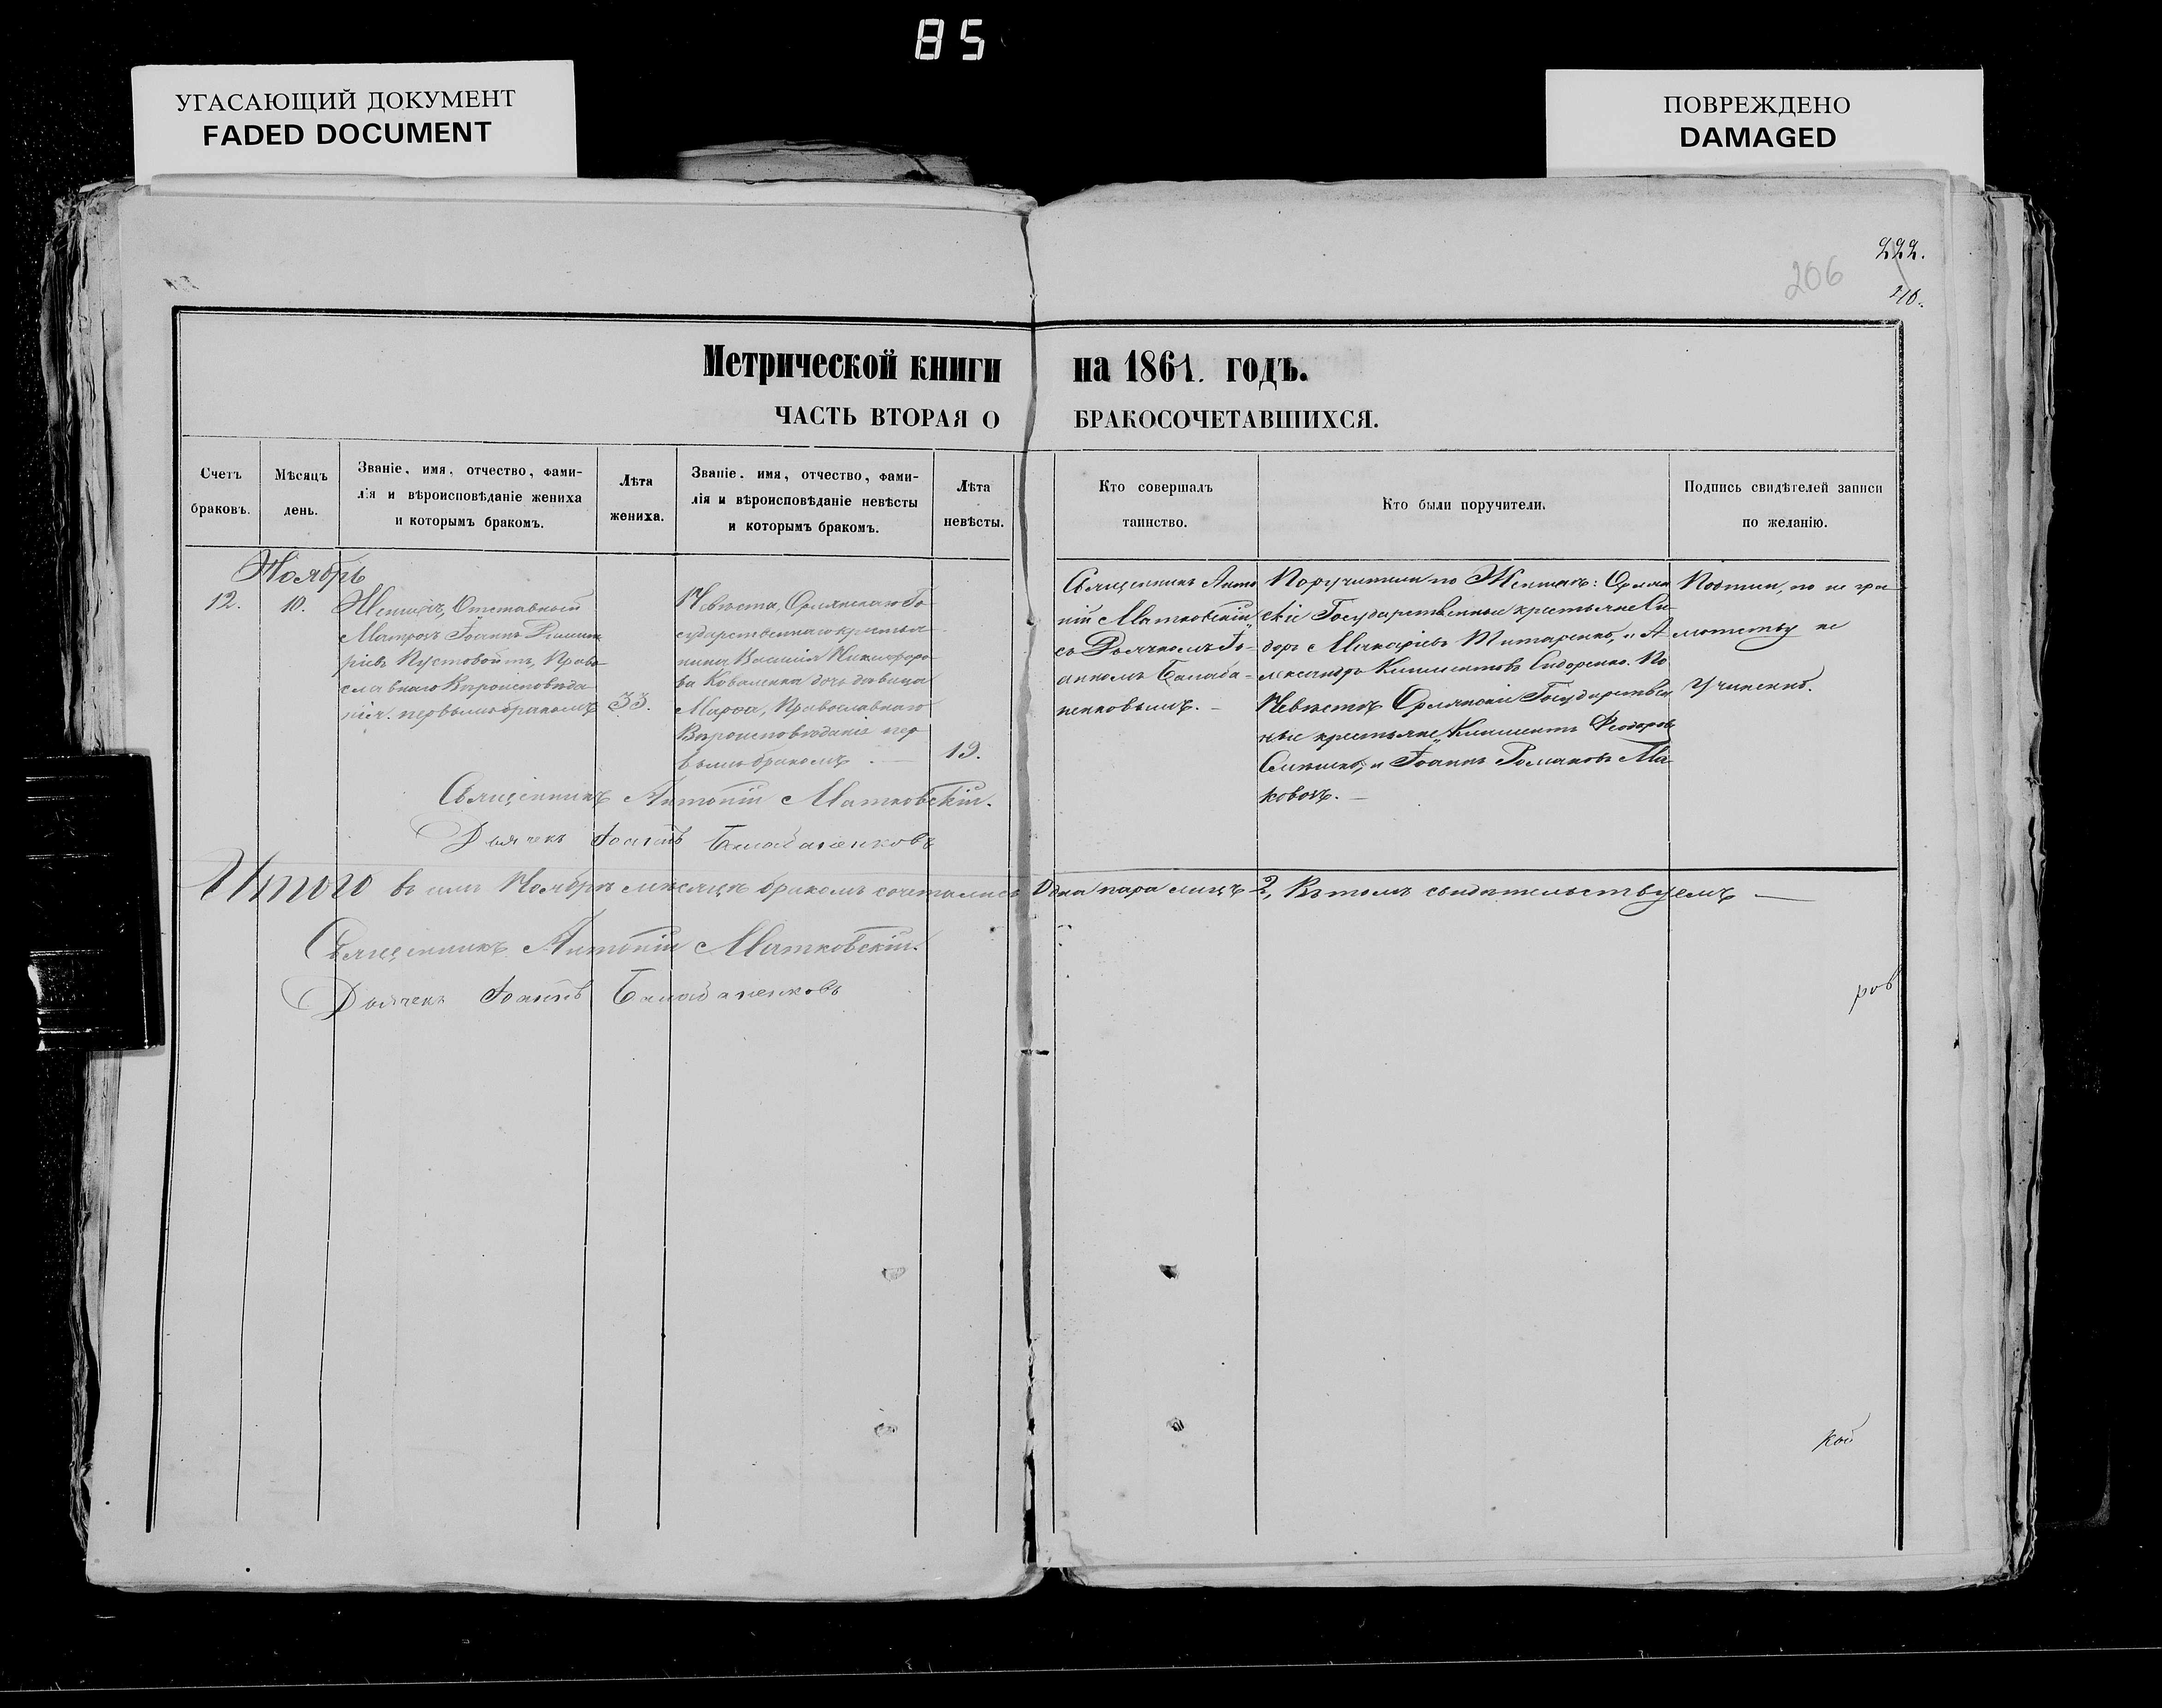 85
УГАСАЮЩИЙ ДОКУМЕНТ
FADED DOCUMENT
ПОВРЕЖДЕНО
DAMAGED
222.
206
Метрической книги на 1861. годъ.
ЧАСТЬ ВТОРАЯ О БРАКОСОЧЕТАВШИХСЯ.
Счетъ
браковъ.
Мѣсяцъ
день.
Званіе, имя, отчество, фами-
лія и вѣроисповѣданіе жениха
и которымъ бракомъ.
Лѣта
жениха.
Званіе, имя, отчество, фами-
лія и вѣроисповѣданіе невѣсты
и которымъ бракомъ.
Лѣта
невѣсты.
Кто совершалъ
таинство.
Кто были поручители.
Подпись свидѣтелей записи
по желанію.
Ноябрь
12.
10.
Женихъ, Отставный
Матрозъ Іоаннъ
ріевъ Пустовойтъ, Право
славнаго Вѣроисповѣда
нія. первымъ бракомъ
33.
Невѣста, Орлянскаго Го-
сударственнаго крестья
нина Василія Никифоро
ва Коваленка дочь дѣвица
Марѳа, Православнаго
Вѣроисповѣданія пер
вымъ бракомъ. —
19.
Священникъ Анто
ній Матковскій
съ Дьячкомъ Іо-
анномъ Балаба-
ненковымъ. —
Поручители по Женихѣ: Орлян
скіе Государственные крестьяне Си
доръ Макаріевъ Титаренко, и А
лександръ Климентовъ Сидоренко. По
Невѣстѣ Орлянскіе Государствен
ные крестьяне, Климентъ Ѳеодоровъ
и Іоаннъ Романовъ Ма
ковозъ. —
не
Учинено.
Священникъ Антоній Матковскій.
Дьячекъ Іоаннъ Балабаненковъ
Итого въ семъ Ноябрѣ мѣсяцѣ бракомъ сочетались Одна пара лицъ 2, Въ томъ свидѣтельствуемъ —
Священникъ Антоній Матковскій.
Дьячекъ Іоаннъ Балабаненковъ
ров
кой